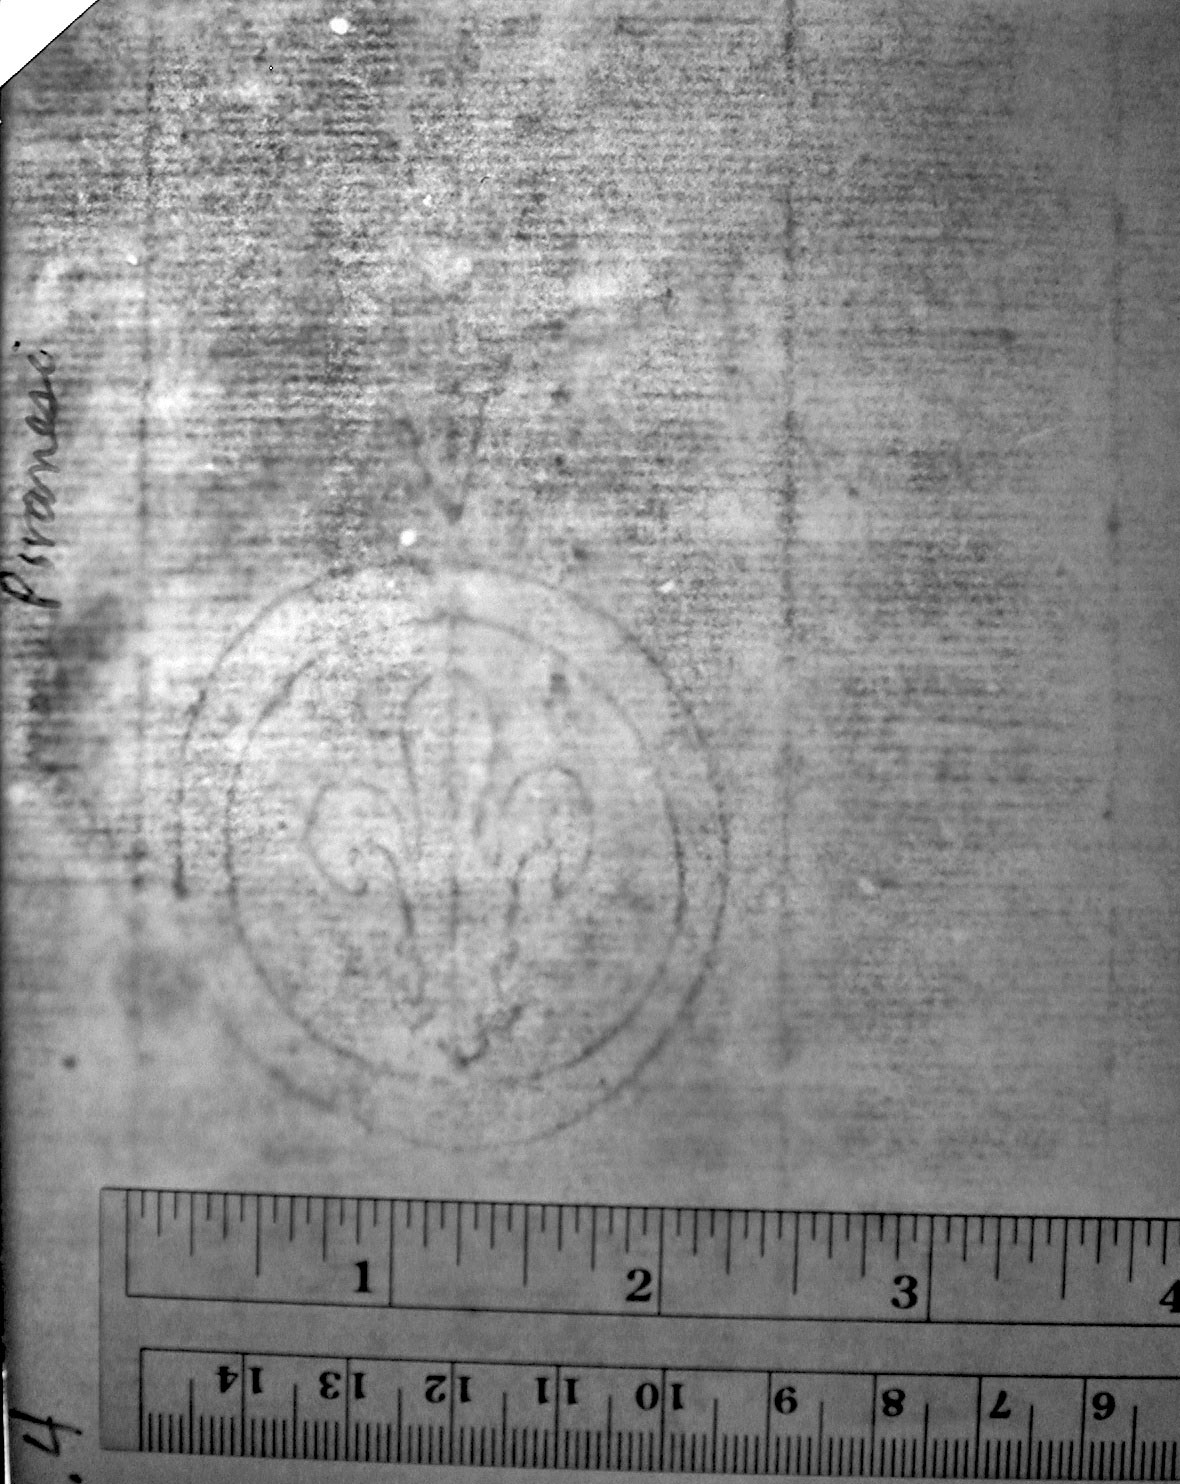 Piranesi
V
1 2 3 4
14 13 12 11 10 9 8 7 6
.4